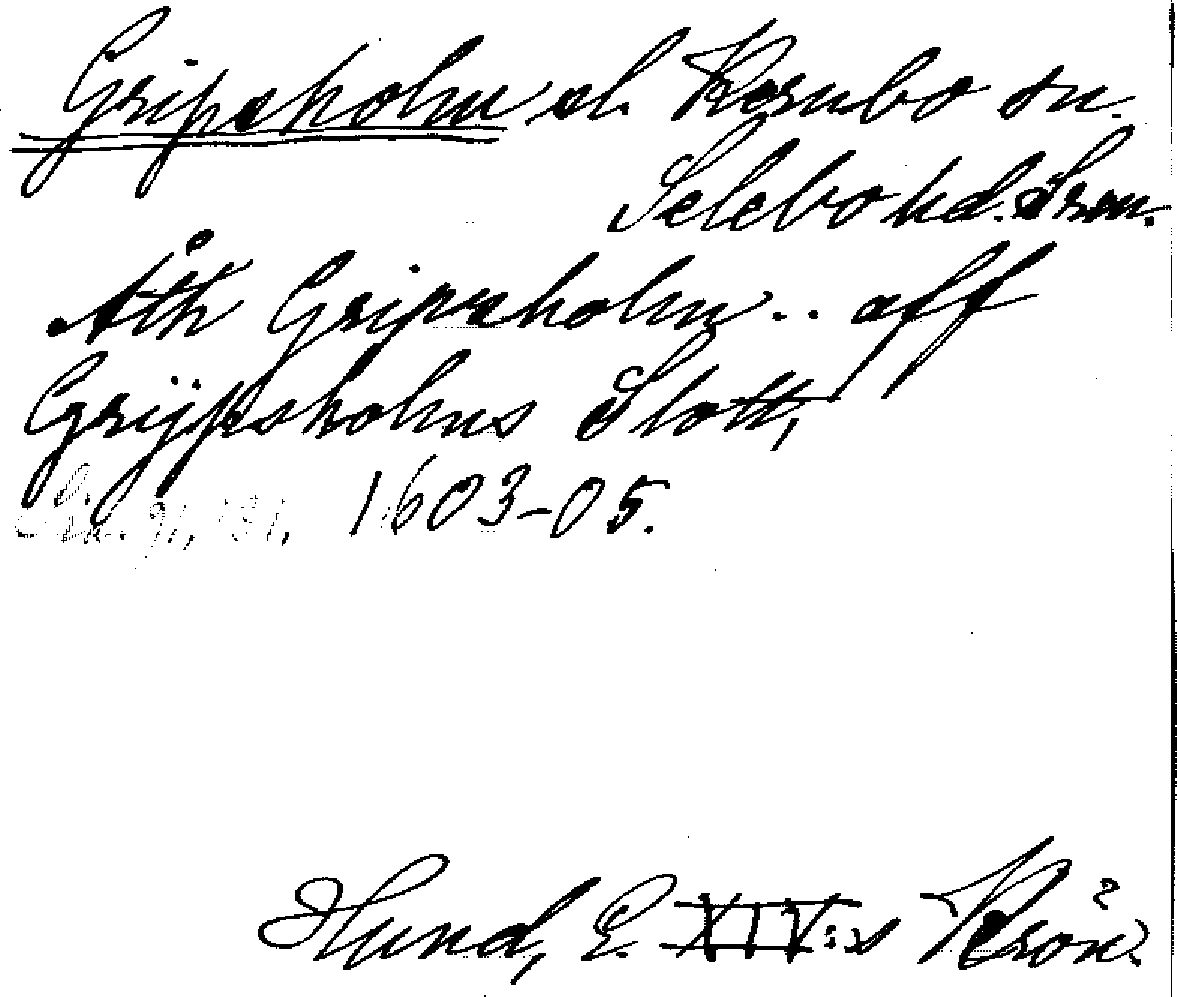 Gripsholm sl. Kernbo sn.
Selebo hd. Srm.
Åth Gripsholm .. aff
Grijpsholms Slott,
1603-05.
Hund, E. XIV:s Krön.